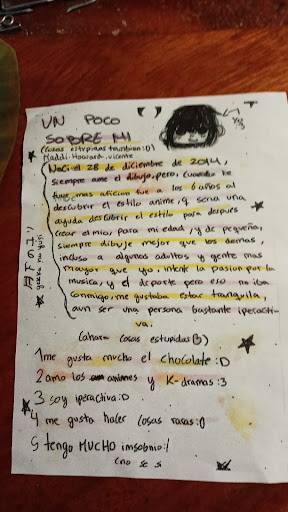 UN POCO
SOBRE MI
(Cosas estupidas tambien :D)
Maddi. Howard. vicente
Naci el 28 de diciembre de 2014,
siempre ame el dibujo, pero, cuando ke
fue mas aficion fue a los 6 años al
descubrir el estilo anime, q seria una
ayuda descubrir el estilo para despues
crear el mio, para mi edad, y de pequeña,
siempre dibuje mejor que los demas,
incluso a algunos adultos y gente mas
mayor que yo, intente la pasion por la
musica, y el deporte pero eso no iba
conmigo, me gustaba estar tranquila,
aun ser una persona bastante iperacti-
va.
(ahora cosas estupidas B)
1 me gusta mucho el chocolate :D
2 amo los animes y K-dramas :3
3 soy iperactiva :D
4 me gusta hacer cosas raras :0
5 tengo MUCHO imsobnio :/
(no se si